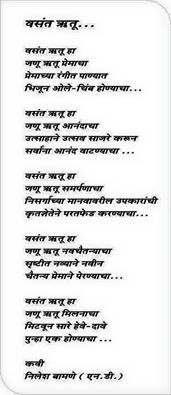 वसंत ऋतू...
वसंत ऋतू हा
जणू ऋतू प्रेमाचा
प्रेमाच्या रंगीत पाण्यात
भिजून ओले-चिंब होण्याचा...
वसंत ऋतू हा
जणू ऋतू आनंदाचा
उत्साहाने उत्सव साजरे करून
सर्वांना आनंद वाटण्याचा ...
वसंत ऋतू हा
जणू ऋतू समर्पणाचा
निसर्गाच्या मानवावरील उपकारांची
कृतज्ञेतेने परतफेड करण्याचा...
वसंत ऋतू हा
जणू ऋतू नवचैतन्याचा
सृष्टीत नव्याने नवीन
चैतन्य प्रेमाने पेरण्याचा...
वसंत ऋतू हा
जणू ऋतू मिलनाचा
मिटवून सारे हेवे-दावे
पुन्हा एक होण्याचा ...
कवी
निलेश बामणे ( एन.डी.)